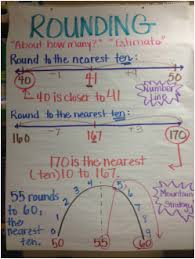 ROUNDING
"About how many?" "Estimate"
Round to the nearest ten:
-1
40 41 50
40 is closer to 41
Number Line
Round to the nearest ten:
-7 +3
160 167 170
170 is the nearest
(ten) 10 to 167.
55 rounds
to 60;
the
nearest
ten.
1 2 3 4 5 6 7 8 9
50 55 60
Mountain Strategy